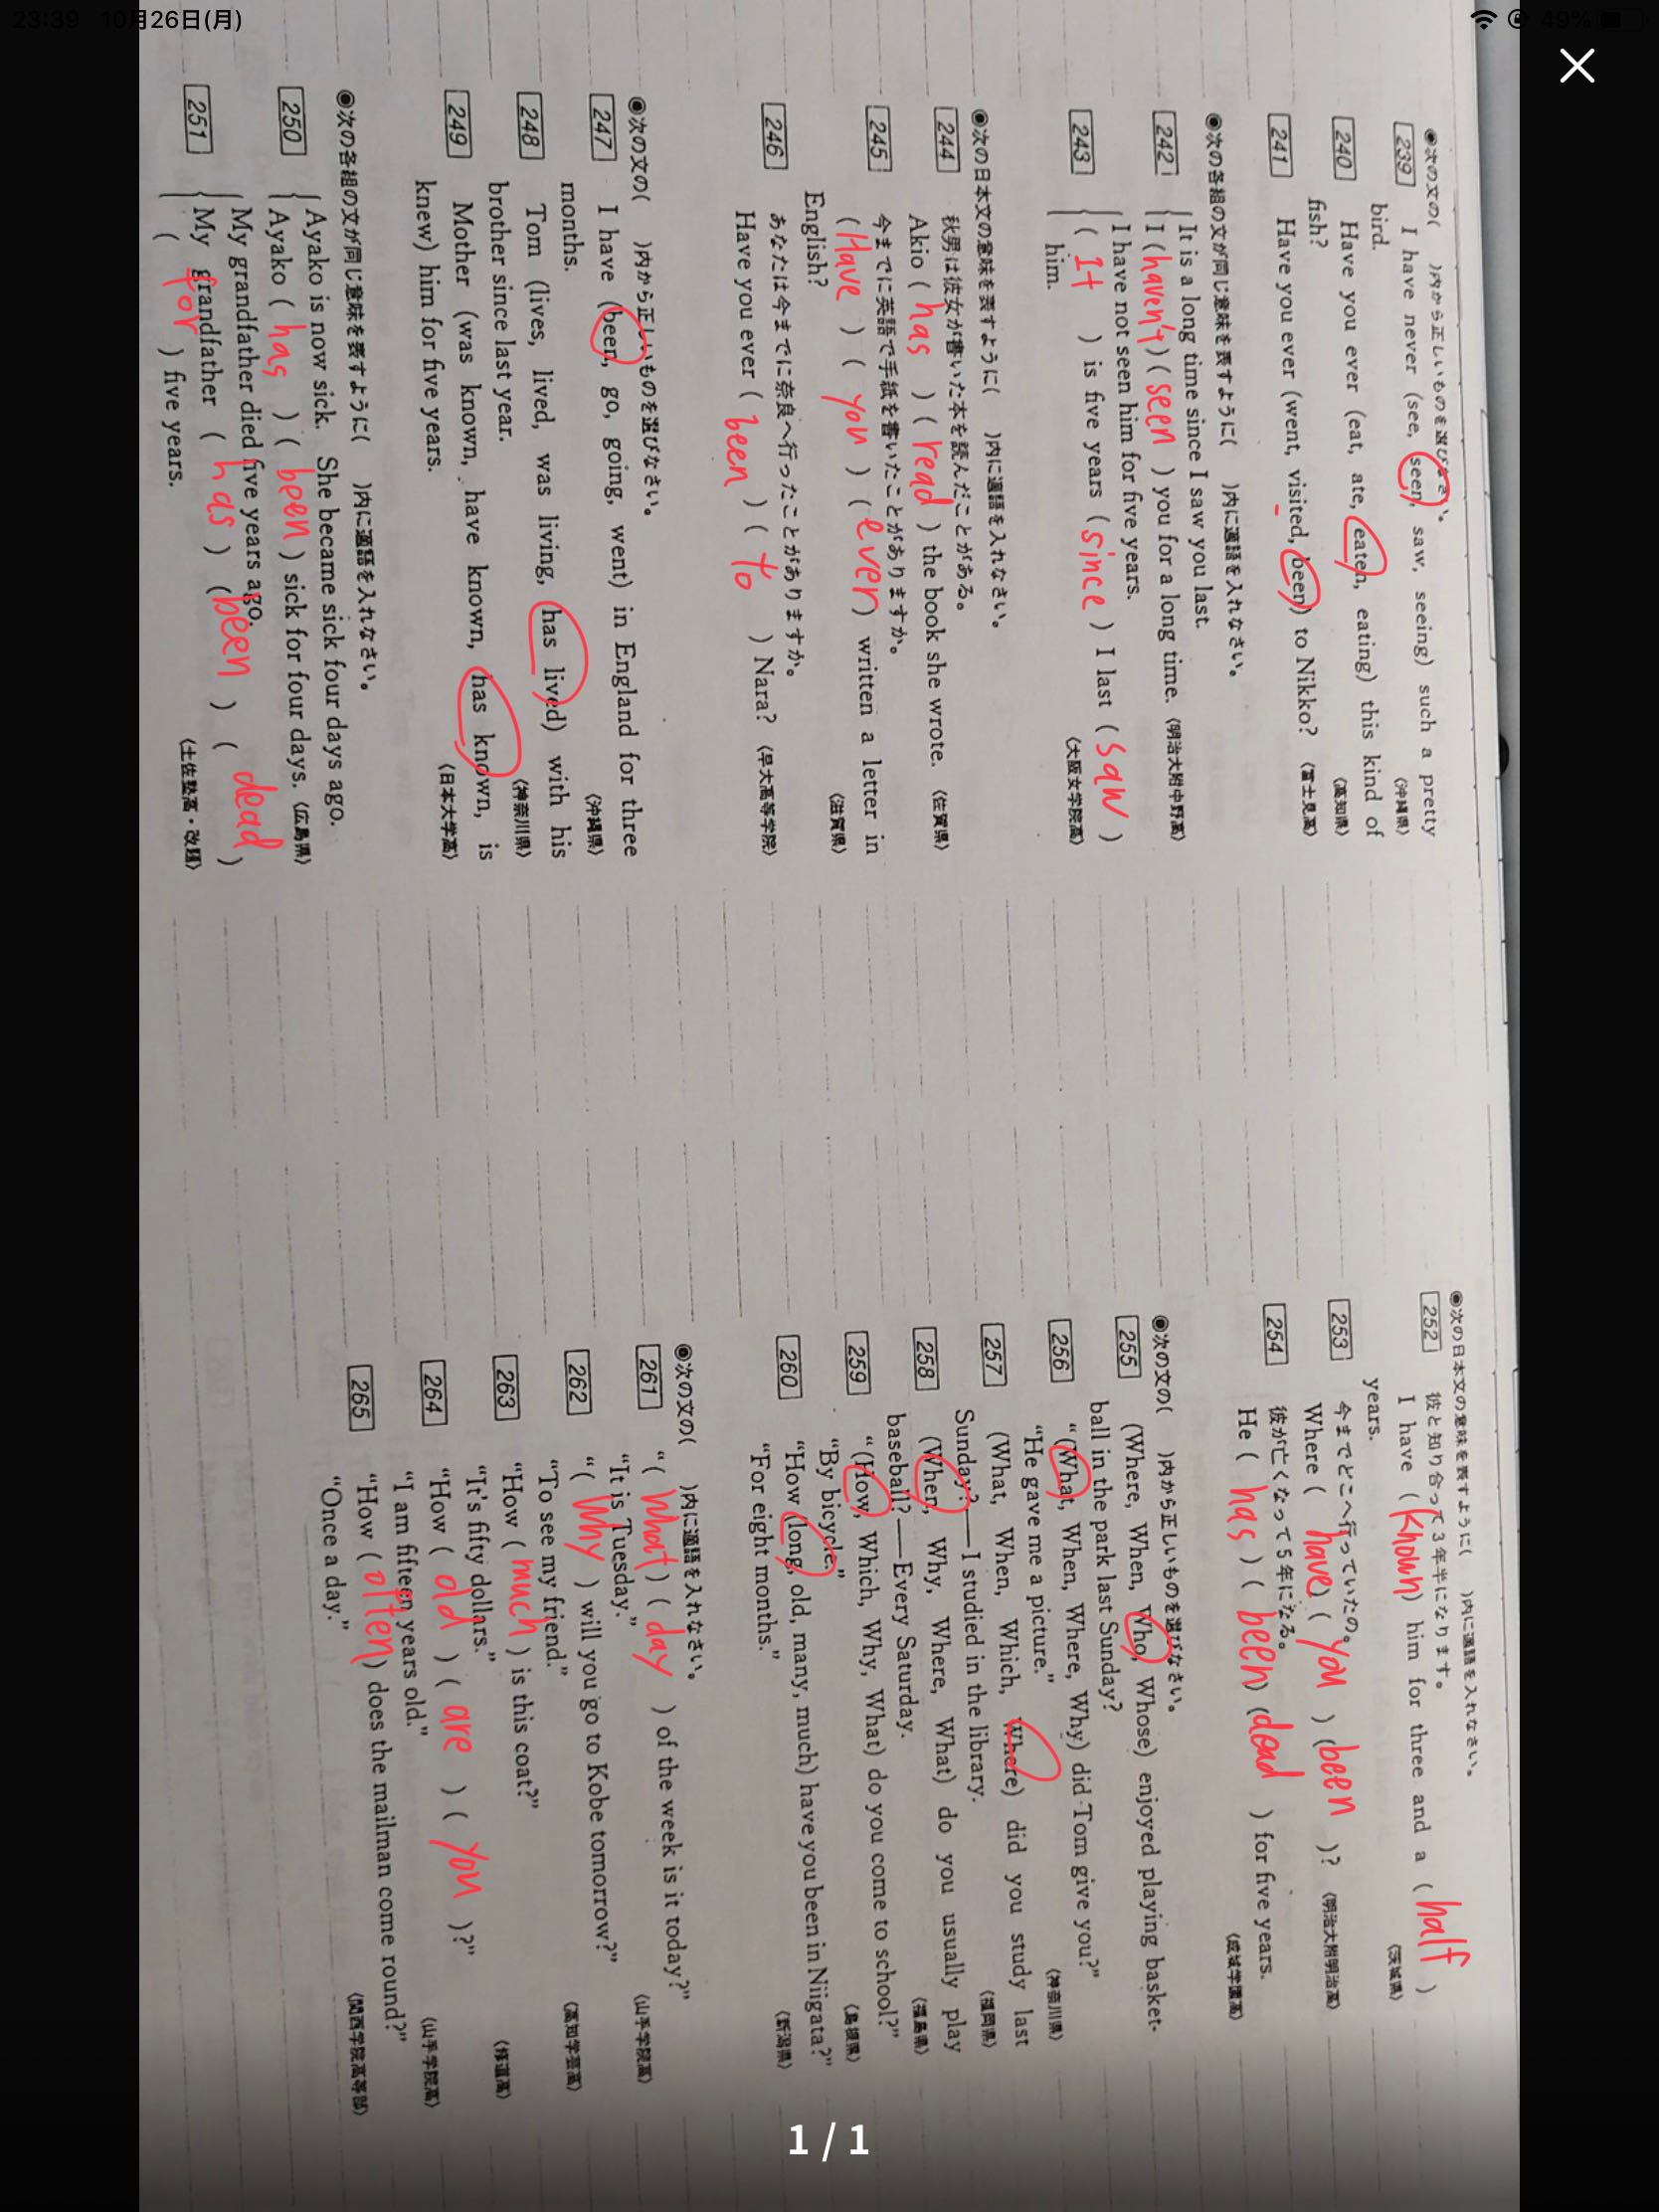 23:39 10月26日(月)
49%
◉次の文の( )内から正しいものを選びなさい。
239 I have never (see, seen, saw, seeing) such a pretty
bird. 〈沖縄県〉
240 Have you ever (eat, ate, eaten, eating) this kind of
fish? 〈高知県〉
241 Have you ever (went, visited, been) to Nikko? 〈富士見高〉
◉次の各組の文が同じ意味を表すように( )内に適語を入れなさい。
242 It is a long time since I saw you last.
I (haven't) (seen) you for a long time. 〈明治大附中野高〉
243 I have not seen him for five years.
(It) is five years (since) I last (saw)
him. 〈大阪女学院高〉
◉次の日本文の意味を表すように( )内に適語を入れなさい。
244 秋男は彼女が書いた本を読んだことがある。
Akio (has) (read) the book she wrote. 〈佐賀県〉
245 今までに英語で手紙を書いたことがありますか。
(Have) (you) (ever) written a letter in
English? 〈滋賀県〉
246 あなたは今までに奈良へ行ったことがありますか。
Have you ever (been) (to) Nara? 〈早大高等学院〉
◉次の文の( )内から正しいものを選びなさい。
247 I have (been, go, going, went) in England for three
months. 〈沖縄県〉
248 Tom (lives, lived, was living, has lived) with his
brother since last year. 〈神奈川県〉
249 Mother (was known, have known, has known, is
knew) him for five years. 〈日本大学高〉
◉次の各組の文が同じ意味を表すように( )内に適語を入れなさい。
250 Ayako is now sick. She became sick four days ago.
Ayako (has) (been) sick for four days. 〈広島県〉
251 My grandfather died five years ago.
My grandfather (has) (been) (dead)
(for) five years. 〈土佐塾高・改題〉
◉次の日本文の意味を表すように( )内に適語を入れなさい。
252 彼と知り合って3年半になります。
I have (known) him for three and a (half)
years. 〈茨城県〉
253 今までどこへ行っていたの。
Where (have) (you) (been)? 〈明治大附明治高〉
254 彼が亡くなって5年になる。
He (has) (been) (dead) for five years. 〈成城学園高〉
◉次の文の( )内から正しいものを選びなさい。
255 (Where, When, Who, Whose) enjoyed playing basket-
ball in the park last Sunday? 〈神奈川県〉
256 “(What, When, Where, Why) did Tom give you?”
“He gave me a picture.” 〈福岡県〉
257 (What, When, Which, Where) did you study last
Sunday?——I studied in the library. 〈福島県〉
258 (When, Why, Where, What) do you usually play
baseball?——Every Saturday. 〈島根県〉
259 “(How, Which, Why, What) do you come to school?”
“By bicycle.” 〈新潟県〉
260 “How (long, old, many, much) have you been in Niigata?”
“For eight months.”
◉次の文の( )内に適語を入れなさい。
261 “(What) (day) of the week is it today?”
“It is Tuesday.” 〈山手学院高〉
262 “(Why) will you go to Kobe tomorrow?”
“To see my friend.” 〈高知学芸高〉
263 “How (much) is this coat?”
“It's fifty dollars.” 〈修道高〉
264 “How (old) (are) (you)?”
“I am fifteen years old.” 〈山手学院高〉
265 “How (often) does the mailman come round?”
“Once a day.” 〈関西学院高等部〉
1 / 1